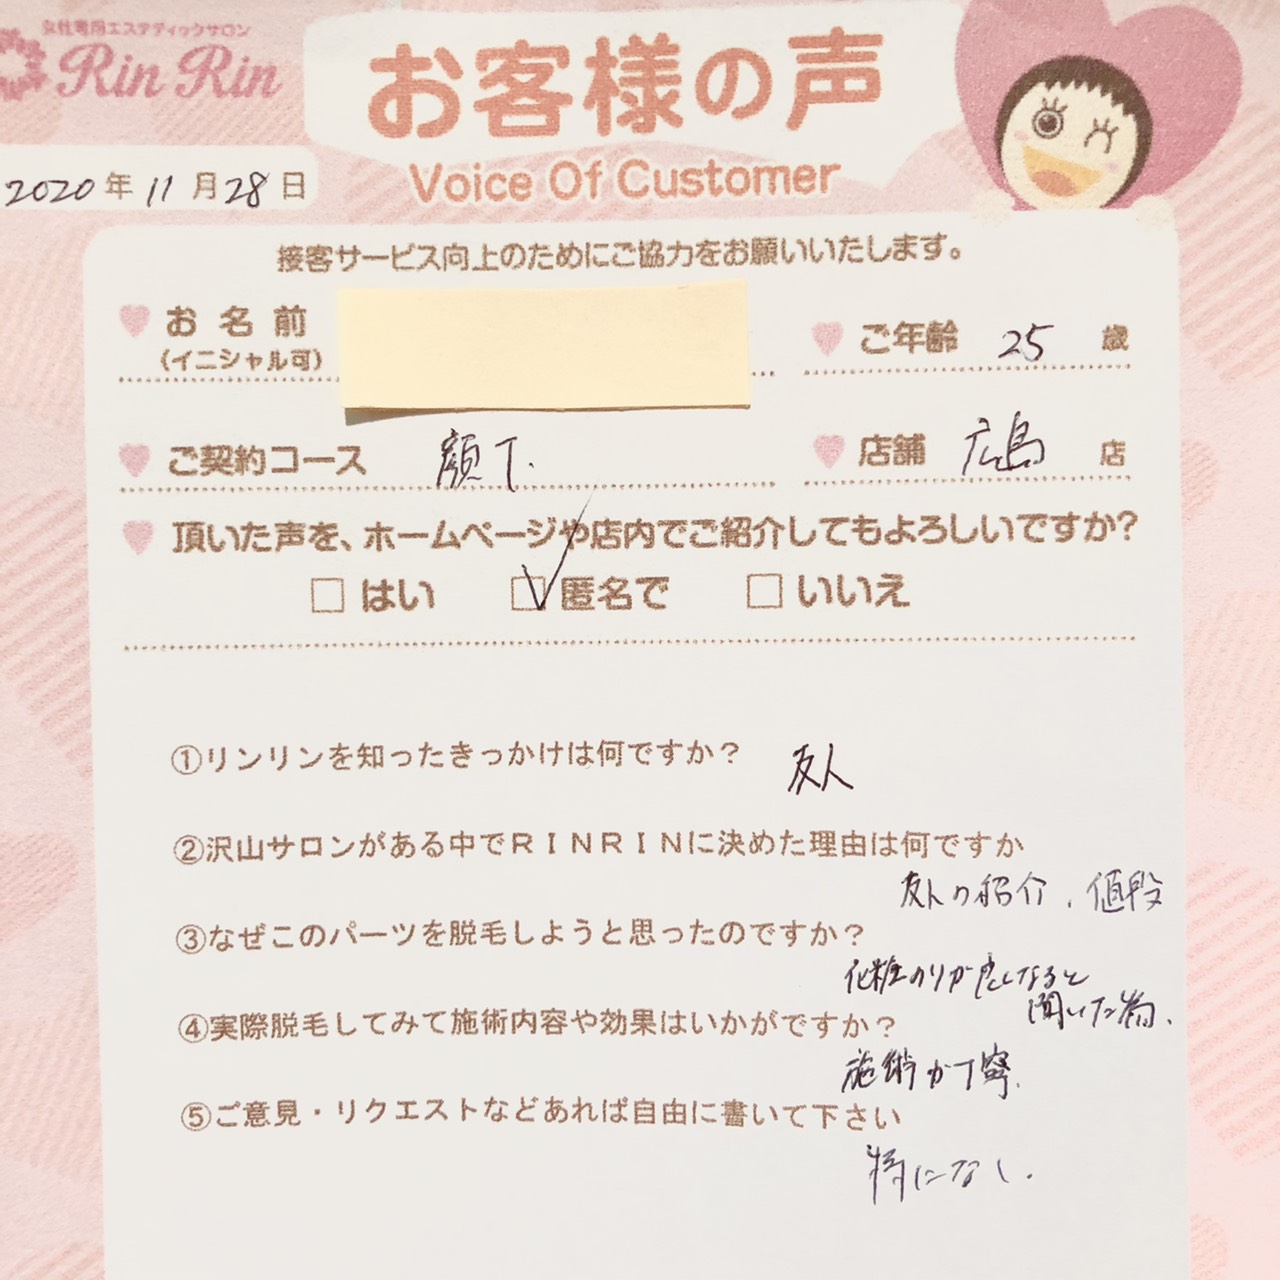 女性専用エステティックサロン
Rin Rin
お客様の声
Voice Of Customer
2020年11月28日
接客サービス向上のためにご協力をお願いいたします。
お名前
(イニシャル可)
ご年齢 25 歳
ご契約コース 顔下.
店舗 広島 店
頂いた声を、ホームページや店内でご紹介してもよろしいですか?
はい 匿名で いいえ
①リンリンを知ったきっかけは何ですか? 友人
②沢山サロンがある中でRINRINに決めた理由は何ですか
友人の紹介、値段
③なぜこのパーツを脱毛しようと思ったのですか?
化粧のりが良くなると
聞いた為、
④実際脱毛してみて施術内容や効果はいかがですか?
施術が丁寧.
⑤ご意見・リクエストなどあれば自由に書いて下さい
特になし.